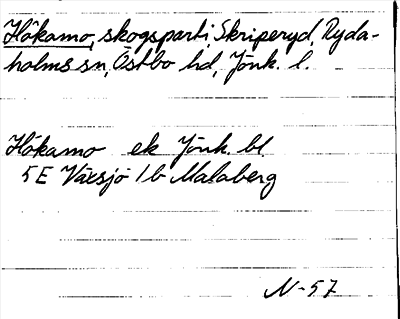 Håkamo, skogsparti, Skriperyd, Ryda-
holms sn, Östbo hd, Jönk. l.
Håkamo ek Jönk. bl.
5E Växsjö 1b Malaberg
N-57